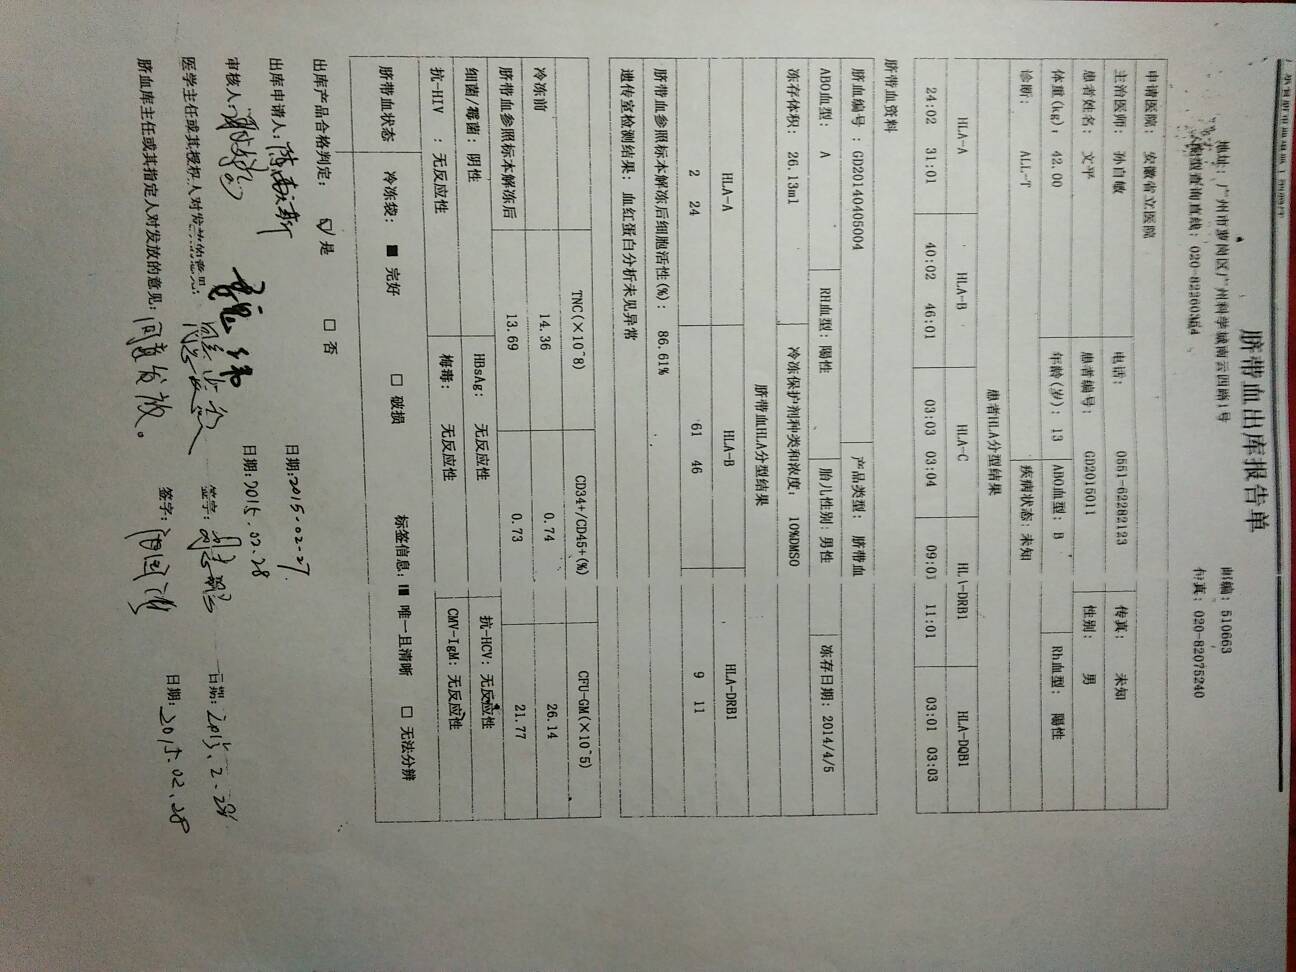 脐带血出库报告单
地址：广州市萝岗区广州科学城南云四路1号 邮编：510663
查询直线：020-82260364 传真：020-82075240
申请医院： 安徽省立医院
主治医师： 孙自敏 电话： 0551-62282123 传真： 未知
患者姓名： 文平 患者编号： GD2015011 性别： 男
体重(kg)： 42.00 年龄(岁)： 13 ABO血型： B Rh血型： 陽性
诊断： ALL-T 疾病状态：未知
患者HLA分型结果
HLA-A HLA-B HLA-C HLA-DRB1 HLA-DQB1
24:02 31:01 40:02 46:01 03:03 03:04 09:01 11:01 03:01 03:03
脐带血资料
脐血编号：GD20140405004 产品类型： 脐带血
ABO血型： A RH血型：陽性 胎儿性别：男性 冻存日期：2014/4/5
冻存体积： 26.13ml 冷冻保护剂种类和浓度： 10%DMSO
脐带血HLA分型结果
HLA-A HLA-B HLA-DRB1
2 24 61 46 9 11
脐带血参照标本解冻后细胞活性(%)： 86.61%
遗传室检测结果：血红蛋白分析未见异常
TNC(×10^8) CD34+/CD45+(%) CFU-GM(×10^5)
冷冻前 14.36 0.74 26.14
脐带血参照标本解冻后 13.69 0.73 21.77
细菌/霉菌：阴性 HBsAg： 无反应性 抗-HCV：无反应性
抗-HIV ：无反应性 梅毒： 无反应性 CMV-IgM：无反应性
脐带血状态 冷冻袋：■ 完好 □ 破损 标签信息：■ 唯一且清晰 □ 无法分辨
出库产品合格判定： ☑是 □ 否
出库申请人： 日期：2015-02-27.
审核人： 日期：2015.02.28
医学主任或其授权人对发放的意见：同意 签字： 日期：2015.2.28
脐血库主任或其指定人对发放的意见：同意发放。 签字： 日期：2015.02.28